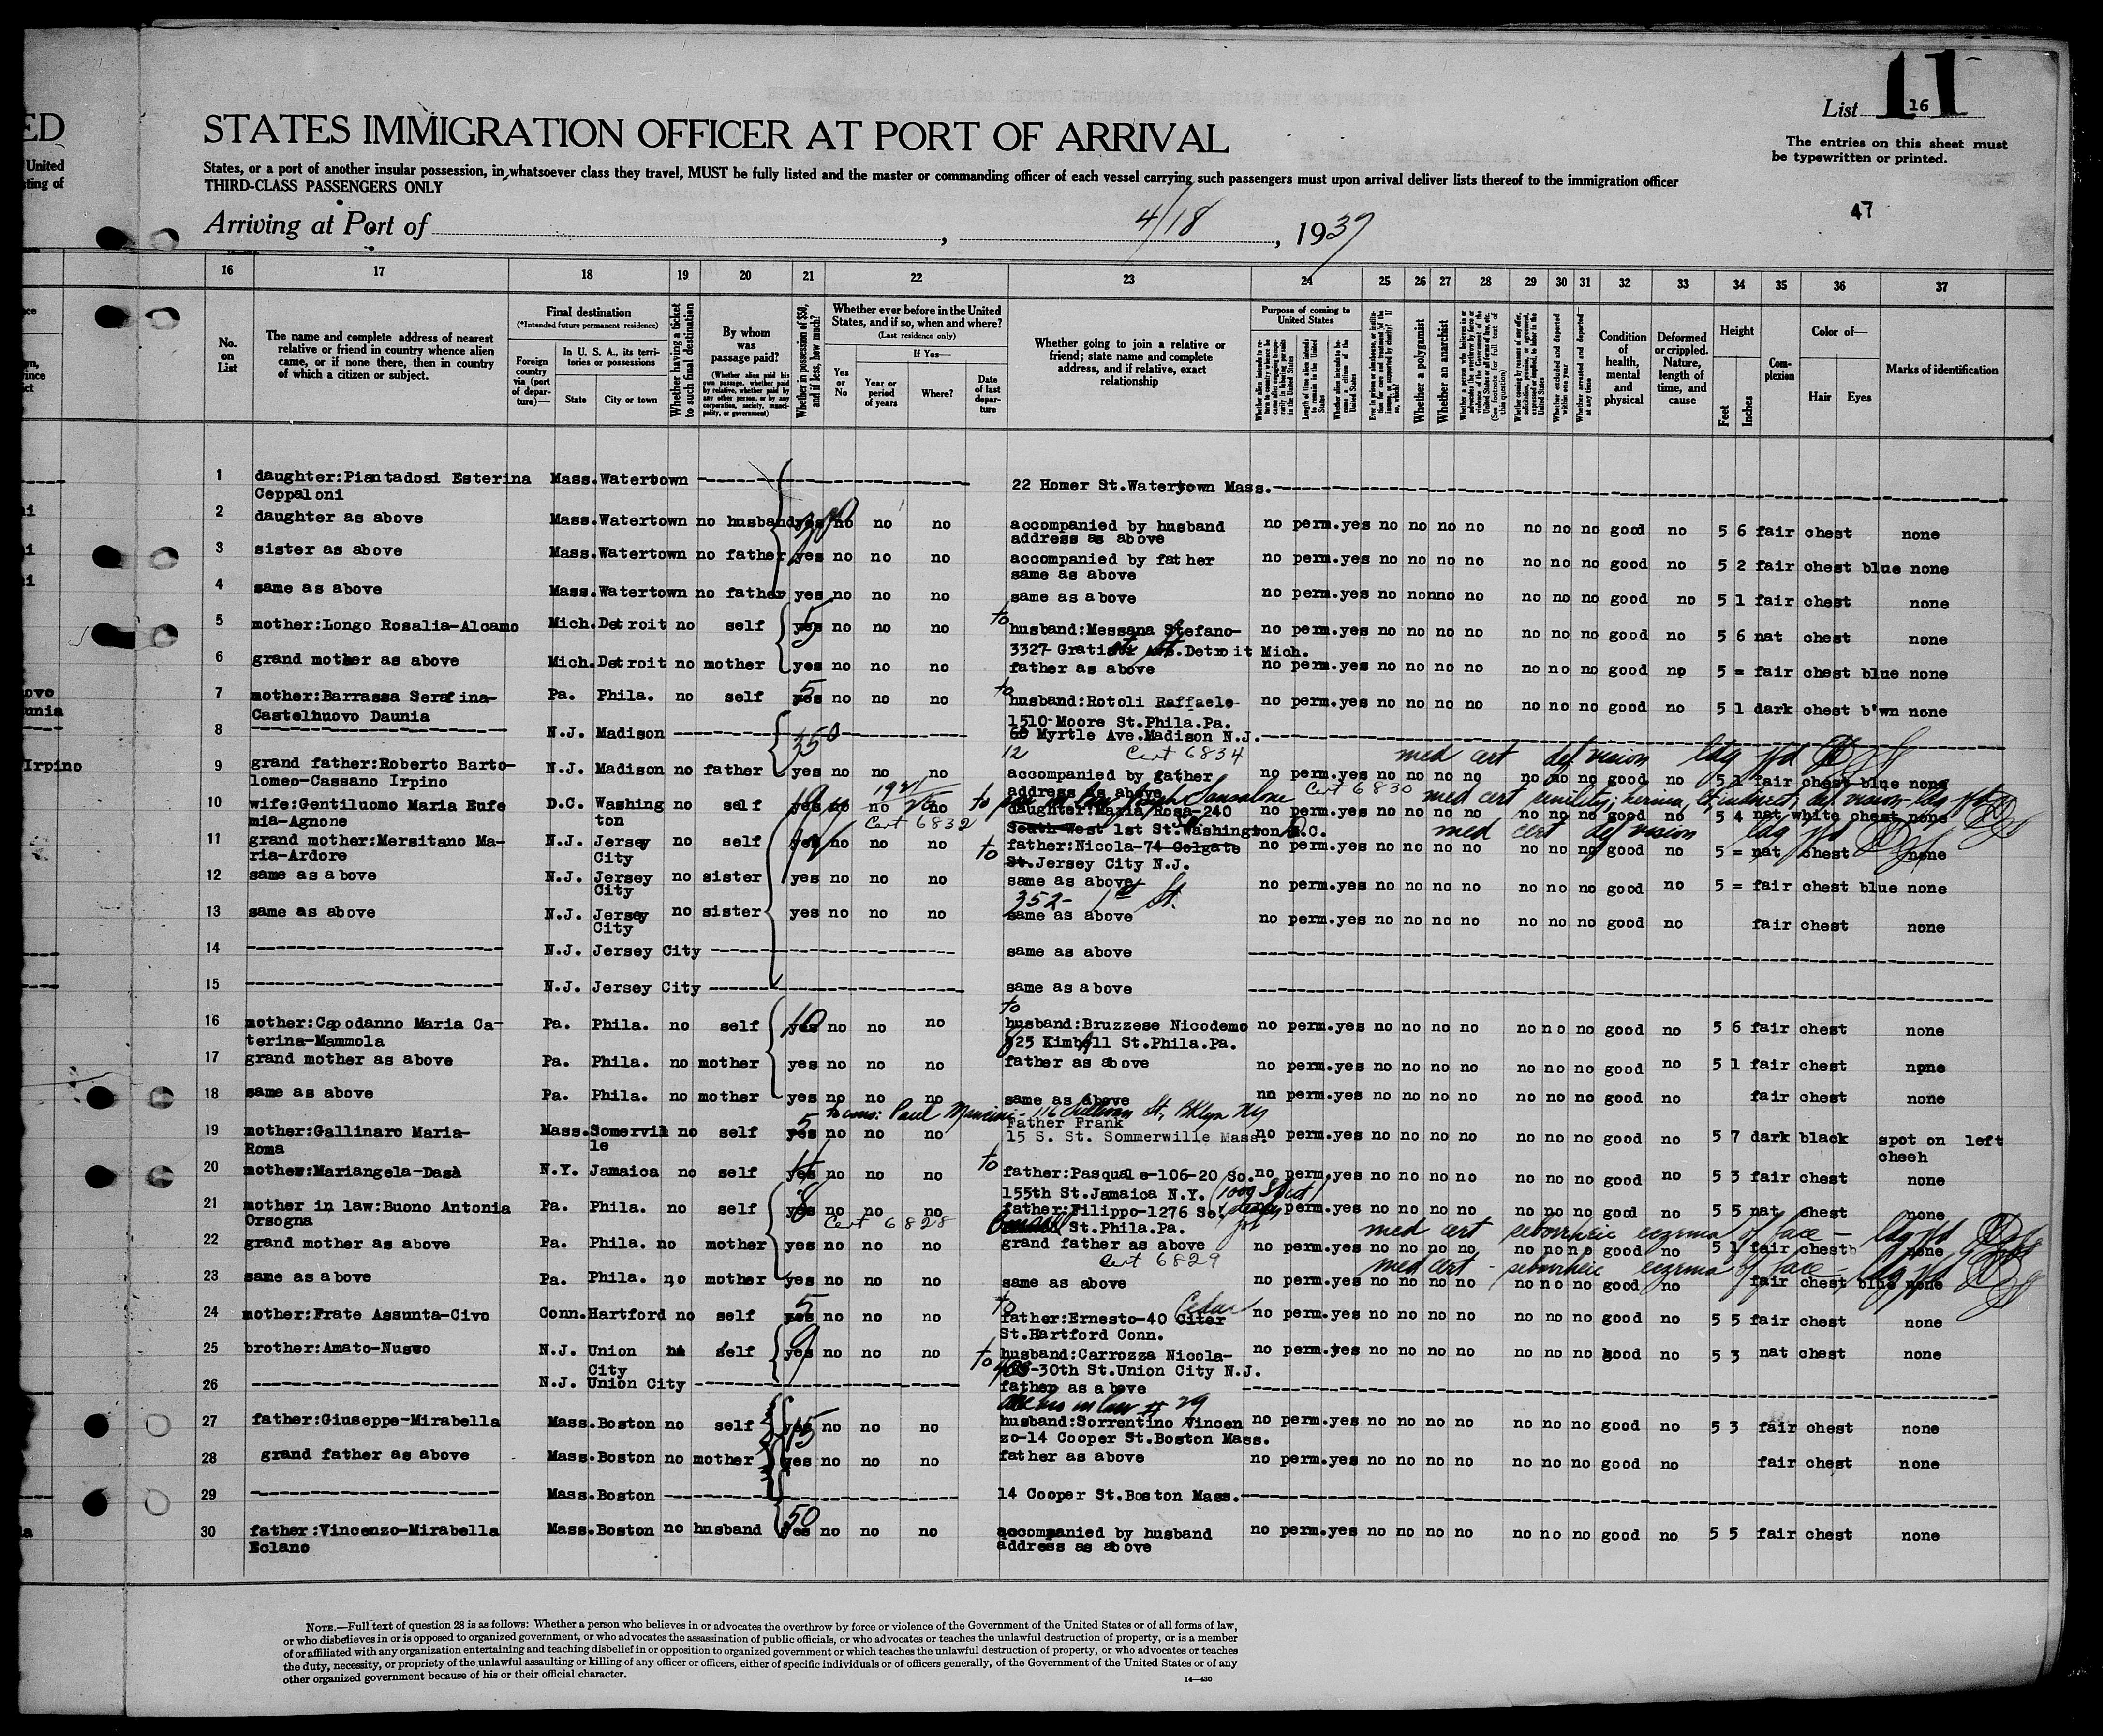 ED
United
ting of
List 16
11
STATES IMMIGRATION OFFICER AT PORT OF ARRIVAL
The entries on this sheet must
be typewritten or printed.
States, or a port of another insular possession, in whatsoever class they travel, MUST be fully listed and the master or commanding officer of each vessel carrying such passengers must upon arrival deliver lists thereof to the immigration officer
THIRD-CLASS PASSENGERS ONLY
47
Arriving at Port of , 4/18 , 1937
16 17 18 19 20 21 22 23 24 25 26 27 28 29 30 31 32 33 34 35 36 37
No. on List
The name and complete address of nearest
relative or friend in country whence alien
came, or if none there, then in country
of which a citizen or subject.
Final destination
(*Intended future permanent residence)
Foreign country via (port of departure)—
In U. S. A., its territories or possessions
State City or town
Whether having a ticket to such final destination
By whom was passage paid?
(Whether alien paid his own passage, whether paid by relative, whether paid by any other person, or by any corporation, society, municipality, or government)
Whether in possession of $50, and if less, how much?
Whether ever before in the United
States, and if so, when and where?
(Last residence only)
Yes or No
If Yes—
Year or period of years
Where?
Date of last departure
Whether going to join a relative or
friend; state name and complete
address, and if relative, exact
relationship
Purpose of coming to United States
Length of time alien intends to remain in the United States
Whether alien intends to become a citizen of the United States
Whether a polygamist
Whether an anarchist
(See footnote for full text of this question)
Whether excluded and deported within one year
Whether arrested and deported at any time
Condition of health, mental and physical
Deformed or crippled. Nature, length of time, and cause
Height
Feet Inches
Complexion
Color of—
Hair Eyes
Marks of identification
1 daughter:Piantadosi Esterina Mass. Watertown 22 Homer St.Watertown Mass.
Ceppaloni
2 daughter as above Mass.Watertown no husband yes no no no accompanied by husband no perm.yes no no no no no no no good no 5 6 fair chest none
address as above
3 sister as above Mass.Watertown no father yes no no no accompanied by father no perm.yes no no no no no no no good no 5 2 fair chest blue none
same as above
4 same as above Mass.Watertown no father yes no no no same as above no perm.yes no nonno no no no no good no 5 1 fair chest none
5 mother:Longo Rosalia-Alcamo Mich.Detroit no self yes 5 no no no to husband:Messana Stefano- no perm.yes no no no no no no no good no 5 6 nat chest none
3327- Gratiot Detroit Mich.
6 grand mother as above Mich.Detroit no mother yes no no no father as above no perm.yes no no no no no no no good no 5 = fair chest blue none
7 mother:Barrassa Serafina- Pa. Phila. no self yes 5 no no no to husband:Rotoli Raffaele- no perm.yes no no no no no no no good no 5 1 dark chest b'wn none
Castelnuovo Daunia 1510-Moore St.Phila.Pa.
8 N.J. Madison 350 Myrtle Ave.Madison N.J.
12 Cert 6834 med cert def vision
9 grand father:Roberto Barto- N.J. Madison no father yes no no no accompanied by father no perm.yes no no no no no no no good no 5 1 fair chest blue none
lomeo-Cassano Irpino address as above
Cert 6830 med cert senility; hernia,
10 wife:Gentiluomo Maria Eufe D.C. Washing no self yes no no no to daughter:Maria Rosa-240 no no no good no 5 4 nat white chest none
mia-Agnone ton Cert 6832 South West 1st St.Washington D.C.
med cert def vision
11 grand mother:Mersitano Ma- N.J. Jersey no self yes no no no to father:Nicola-74 Colgate no perm.yes no no no no no no no good no 5 = nat chest none
ria-Ardore City St.Jersey City N.J.
12 same as above N.J. Jersey no sister yes no no no same as above no perm.yes no no no no no no no good no 5 = fair chest blue none
City 352- 1st St.
13 same as above N.J. Jersey no sister yes no no no same as above no perm.yes no no no no no no no good no fair chest none
City
14 N.J. Jersey City same as above
15 N.J. Jersey City same as above
16 mother:Capodanno Maria Ca- Pa. Phila. no self yes 10 no no no to husband:Bruzzese Nicodemo no perm.yes no no no no no no no good no 5 6 fair chest none
terina-Mammola 825 Kimball St.Phila.Pa.
17 grand mother as above Pa. Phila. no mother yes no no no father as above no perm.yes no no no no no no no good no 5 1 fair chest none
18 same as above Pa. Phila. no mother yes no no no same as above nn perm.yes no no no no no no no good no fair chest none
to cons: Paul Mancini - 116 Sullivan St, Bklyn NY
19 mother:Gallinaro Maria- Mass.Somervil no self yes 5 no no no Father Frank no perm.yes no no no no no no no good no 5 7 dark black spot on left
Roma le 15 S. St. Sommerwille Mass. cheeh
20 mother:Mariangela-Dasà N.Y. Jamaica no self yes no no no to father:Pasquale-106-20 So. no perm.yes no no no no no no no good no 5 3 fair chest none
155th St.Jamaica N.Y.
21 mother in law:Buono Antonia Pa. Phila. no self yes 8 no no no father:Filippo-1276 So. perm.yes no no no no no no no good no 5 5 nat chest none
Orsogna Cert 6828 St.Phila.Pa.
med cert seborrheic eczema of face —
22 grand mother as above Pa. Phila. no mother yes no no no grand father as above no perm.yes no no no no no no no good no 5 1 fair chestb none
Cert 6829 med cert - seborrheic eczema of face -
23 same as above Pa. Phila. no mother yes no no no same as above no perm.yes no no no no no no no good no fair chest blue none
24 mother:Frate Assunta-Civo Conn.Hartford no self yes 5 no no no to father:Ernesto-40 Citer Cedar no perm.yes no no no no no no no good no 5 5 fair chest none
St.Hartford Conn.
25 brother:Amato-Nusco N.J. Union self yes 9 no no no to husband:Carrozza Nicola- no perm.yes no no no no no no no good no 5 3 nat chest none
City 408-30th St.Union City N.J.
26 N.J. Union City father as above
27 father:Giuseppe-Mirabella Mass.Boston no self yes 15 no no no husband:Sorrentino Vincen no perm.yes no no no no no no no good no 5 3 fair chest none
zo-14 Cooper St.Boston Mass.
28 grand father as above Mass.Boston no mother yes no no no father as above no perm.yes no no no no no no no good no fair chest none
29 Mass.Boston 14 Cooper St.Boston Mass.
30 father:Vincenzo-Mirabella Mass.Boston no husband yes 50 no no no accompanied by husband no perm.yes no no no no no no no good no 5 5 fair chest none
Eclano address as above
NOTE.—Full text of question 28 is as follows: Whether a person who believes in or advocates the overthrow by force or violence of the Government of the United States or of all forms of law,
or who disbelieves in or is opposed to organized government, or who advocates the assassination of public officials, or who advocates or teaches the unlawful destruction of property, or is a member
of or affiliated with any organization entertaining and teaching disbelief in or opposition to organized government or which teaches the unlawful destruction of property, or who advocates or teaches
the duty, necessity, or propriety of the unlawful assaulting or killing of any officer or officers, either of specific individuals or of officers generally, of the Government of the United States or of any
other organized government because of his or their official character.
14—430